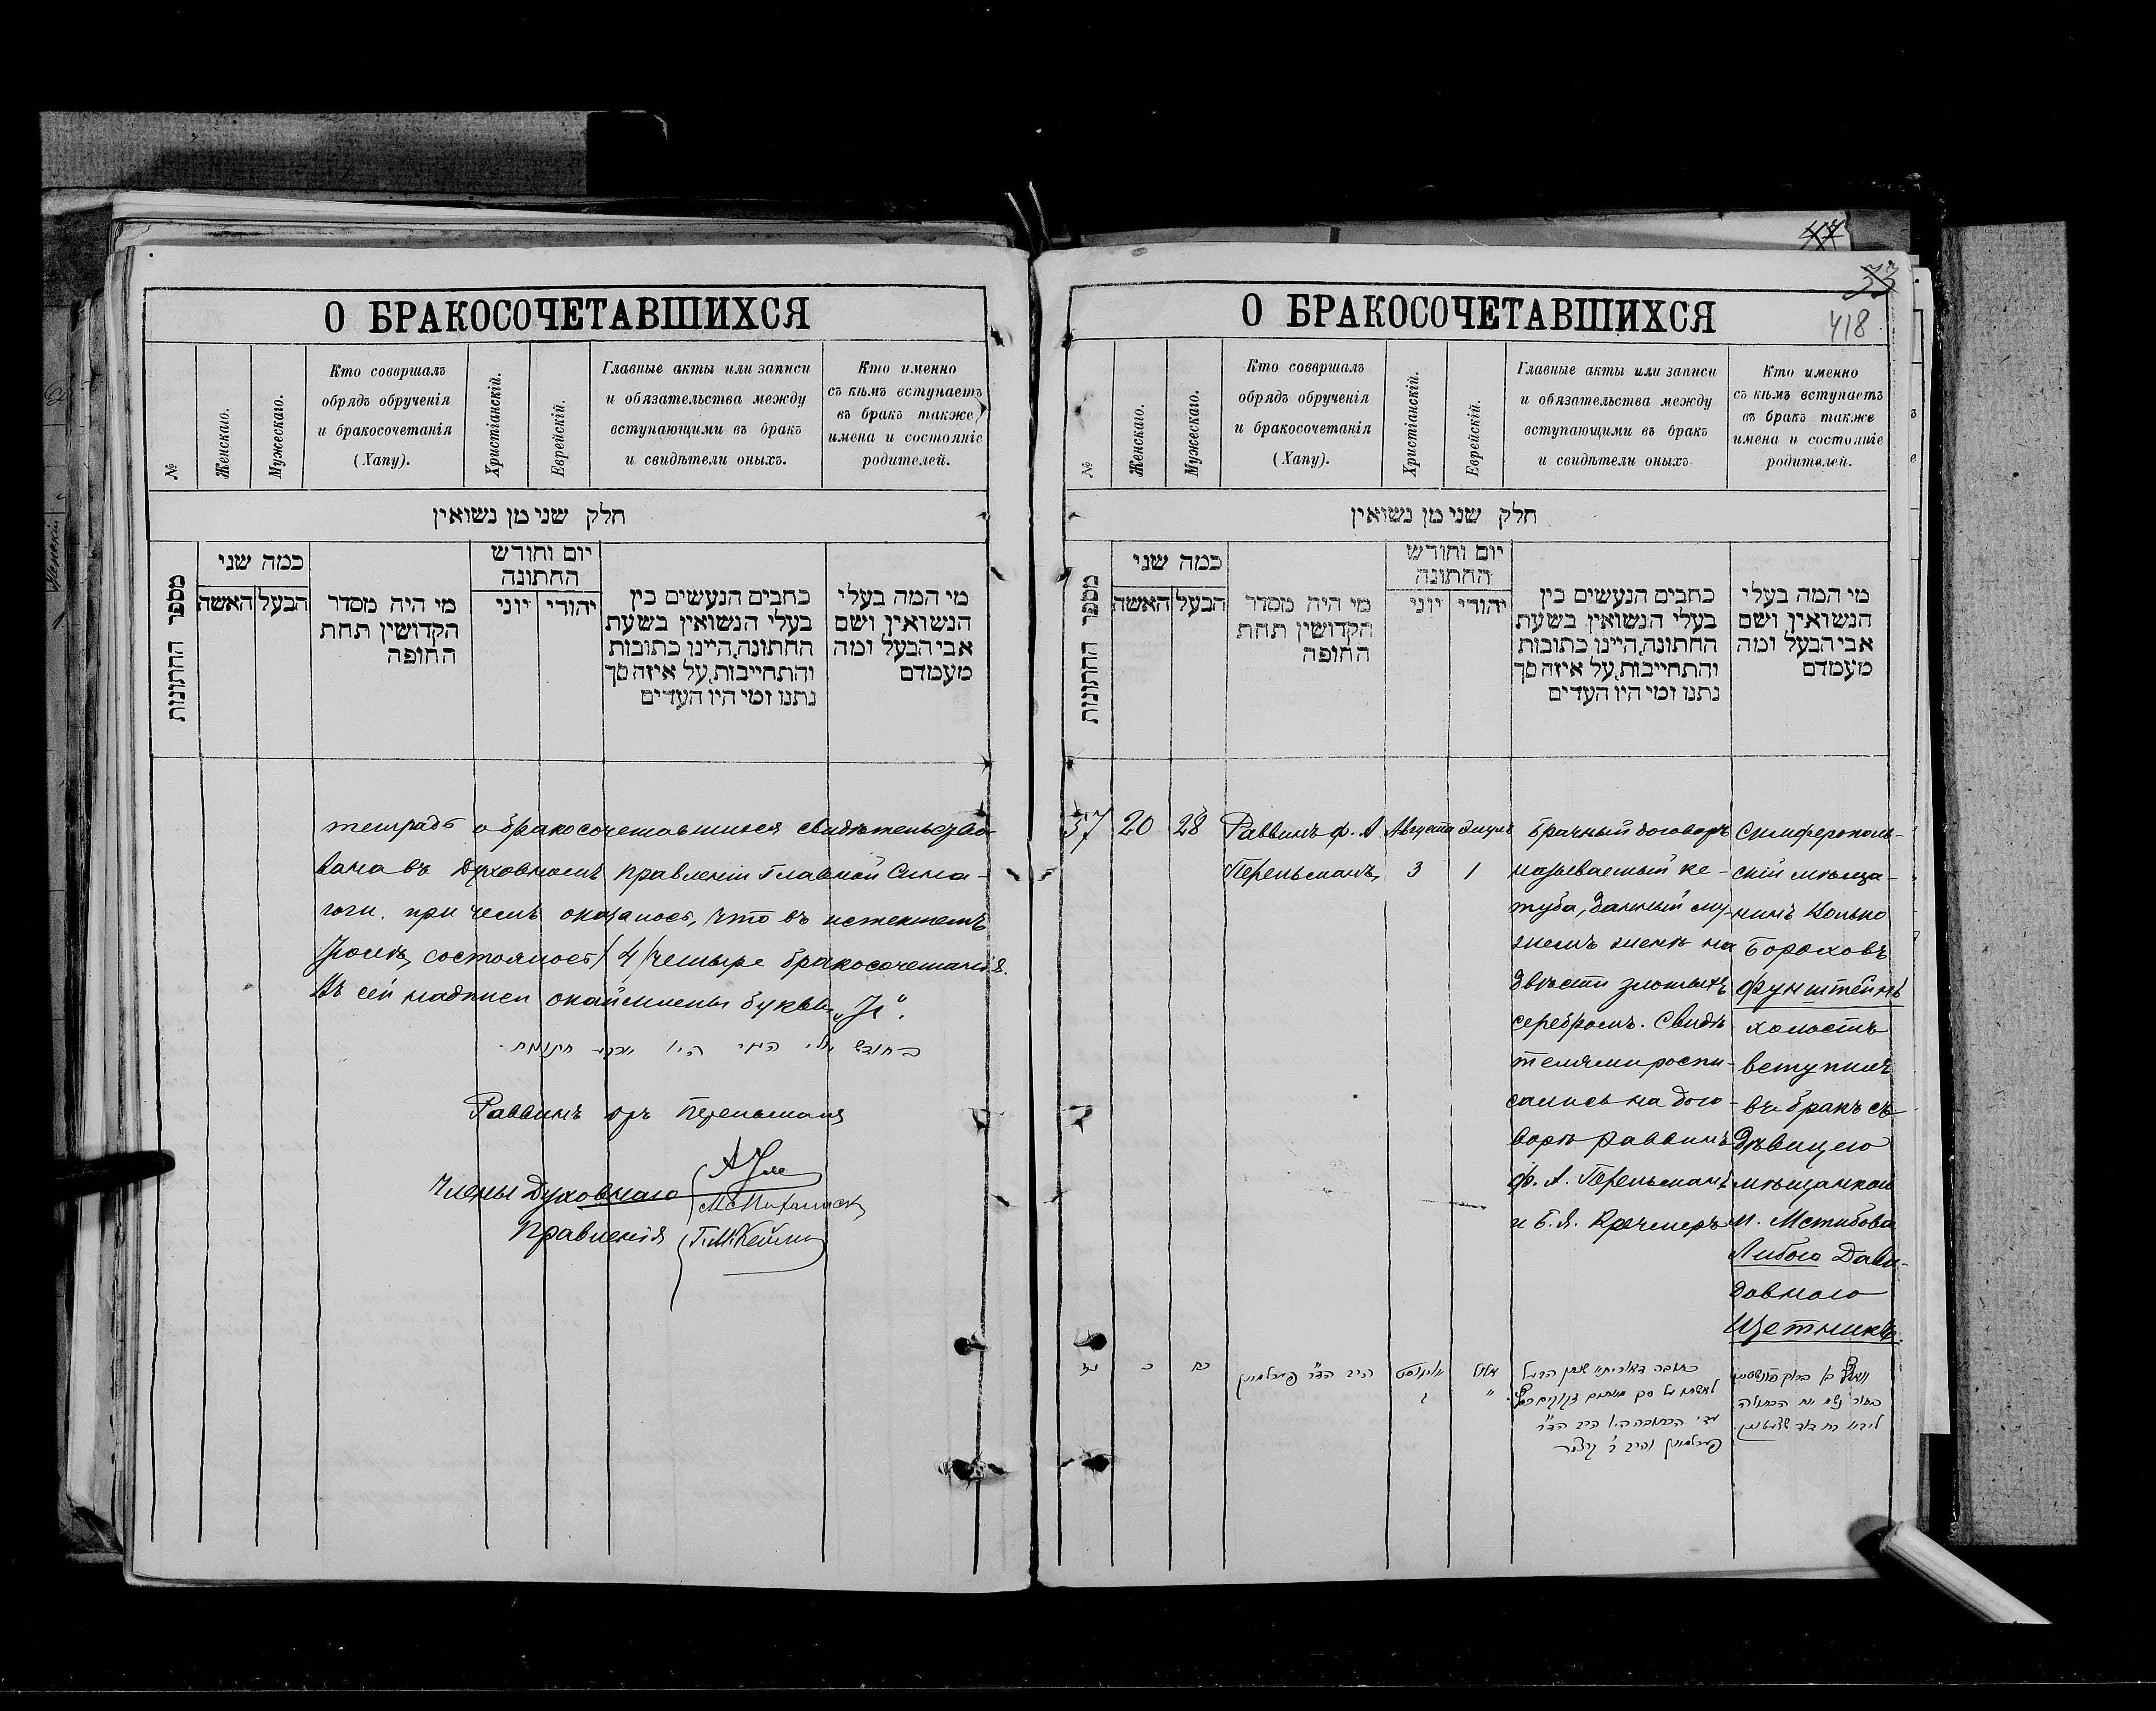 О БРАКОСОЧЕТАВШИХСЯ
№
Женскаго.
Мужескаго.
Кто совершалъ
обрядъ обрученія
и бракосочетанія
(Хапу).
Христіанскій.
Еврейскій.
Главные акты или записи
и обязательства между
вступающими въ бракъ
и свидѣтели оныхъ.
Кто именно
съ кѣмъ вступаетъ
въ бракъ также
имена и состояніе
родителей.
חלק שני מן נשואין
מספר החתונות
כמה שני
האשה
הבעל
מי היה מסדר
הקדושין תחת
החופה
יום וחודש
החתונה
יוני
יהודי
כתבים הנעשים בין
בעלי הנשואין בשעת
החתונה, היינו כתובות
והתחייבות, על איזה סך
נתנו ומי היו העדים
מי המה בעלי
הנשואין ושם
אבי הבעל ומה
מעמדם
тетрадь о бракосочетавшихся свидѣтельство-
вана въ Духовномъ Правленіи Главной Сина-
гоги. при чемъ оказалось, что въ истекшемъ
Іюлѣ, состоялось /4/ четыре бракосочетанія.
Въ сей надписи окаймлены буквы „Іл“.
בחודש יולי
היו
חתונות
Раввинъ др Перельманъ
Члены Духовнаго
Правленія
44
33
418
О БРАКОСОЧЕТАВШИХСЯ
№
Женскаго.
Мужескаго.
Кто совершалъ
обрядъ обрученія
и бракосочетанія
(Хапу).
Христіанскій.
Еврейскій.
Главные акты или записи
и обязательства между
вступающими въ бракъ
и свидѣтели оныхъ
Кто именно
съ кѣмъ вступаетъ
въ бракъ также
имена и состояніе
родителей.
חלק שני מן נשואין
מספר החתונות
כמה שני
האשה
הבעל
מי היה מסדר
הקדושין תחת
החופה
יום וחודש
החתונה
יוני
יהודי
כתבים הנעשים בין
בעלי הנשואין בשעת
החתונה, היינו כתובות
והתחייבות, על איזה סך
נתנו ומי היו העדים
מי המה בעלי
הנשואין ושם
אבי הבעל ומה
מעמדם
57
20
28
Раввинъ Ф. А.
Перельманъ,
Августа
3
Элулъ
1
Брачный договоръ
называемый ке-
туба, данный му-
жемъ женѣ на
двѣсти злотыхъ
серебромъ. Свидѣ
телями роспи-
сались на дого-
ворѣ раввинъ
Ф. А. Перельманъ
и Б. Я. Кречмеръ
Симферополь-
скій мѣща-
нинъ Волько
Бороховъ
Фунштейнъ
холостъ
вступилъ
въ бракъ съ
дѣвицею
мѣщанкой
м. Мстибова
Либою Дави-
довною
Щетникъ.
נז
כ
כח
הרב הד״ר פערלמאן
אויגוסט
ג
אלול
כתובה דאורייתא שנתן הבעל
עדי הכתובה היו הרב הד״ר
פערלמאן והרב
בחור נשא את הבתולה
ליבא בת דוד